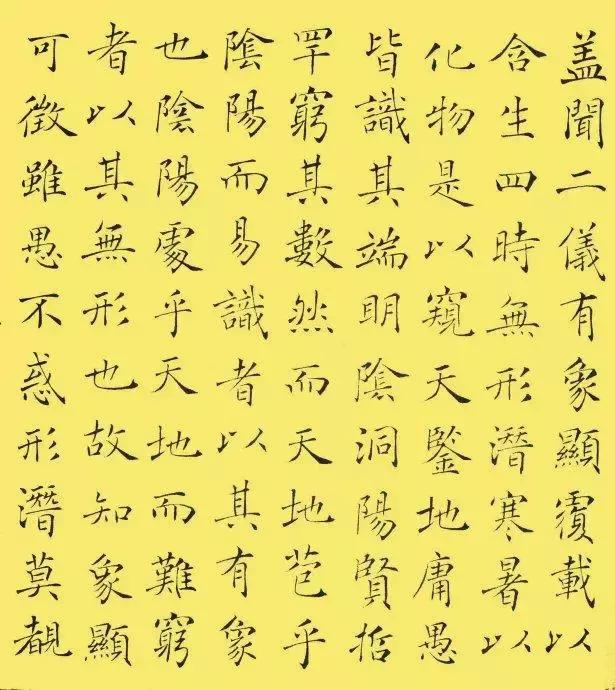 蓋聞二儀有象顯覆載以
含生四時無形潛寒暑以
化物是以窺天鑒地庸愚
皆識其端明陰洞陽賢哲
罕窮其數然而天地苞乎
陰陽而易識者以其有象
也陰陽處乎天地而難窮
者以其無形也故知象顯
可徵雖愚不惑形潛莫覩